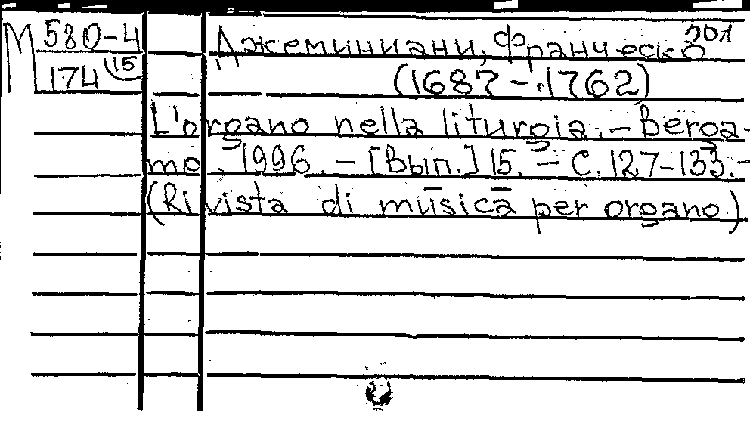 М 580-4
174 (15
Джеминиани, Франческо
(1687-1762)
L'organo nella liturgia. - Berga-
mo, 1996. - [Вып.] 15. - С. 127-133. -
(Rivista di musica per organo)